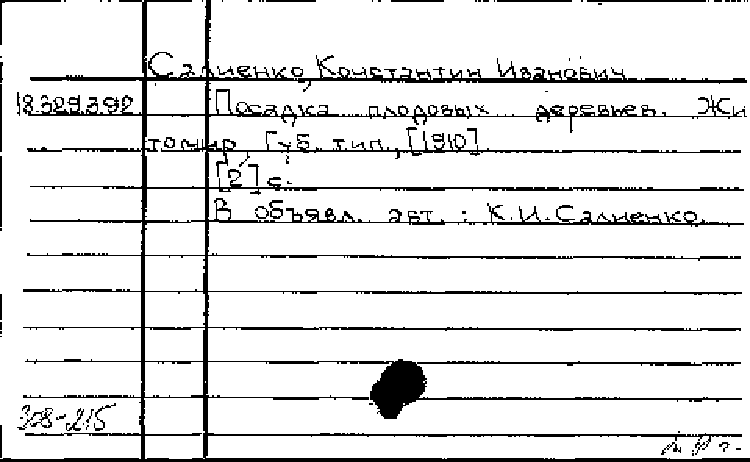 Салиенко, Константин Иванович
18.329.392 Посадка плодовых деревьев. Жи
томир, Губ. тип., [1910].
[2] с.
В объявл. авт.: К.И.Салиенко.
308-215